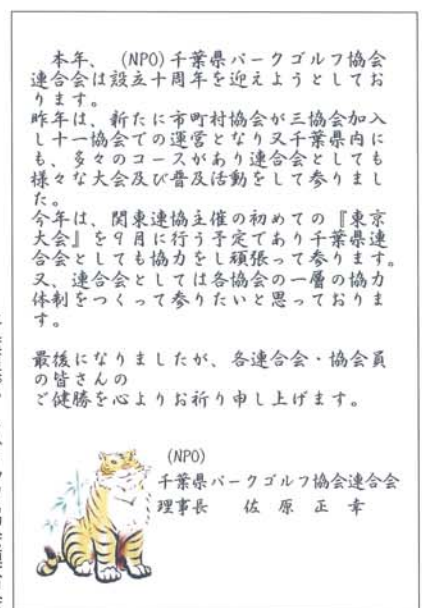 本年、(NPO)千葉県パークゴルフ協会
連合会は設立十周年を迎えようとしてお
ります。
昨年は、新たに市町村協会が三協会加入
し十一協会での運営となり又千葉県内に
も、多々のコースがあり連合会としても
様々な大会及び普及活動をして参りまし
た。
今年は、関東連協主催の初めての『東京
大会』を9月に行う予定であり千葉県連
合会としても協力をし頑張って参ります。
又、連合会としては各協会の一層の協力
体制をつくって参りたいと思っておりま
す。
最後になりましたが、各連合会・協会員
の皆さんの
ご健勝を心よりお祈り申し上げます。
(NPO)
千葉県パークゴルフ協会連合会
理事長 佐原正幸